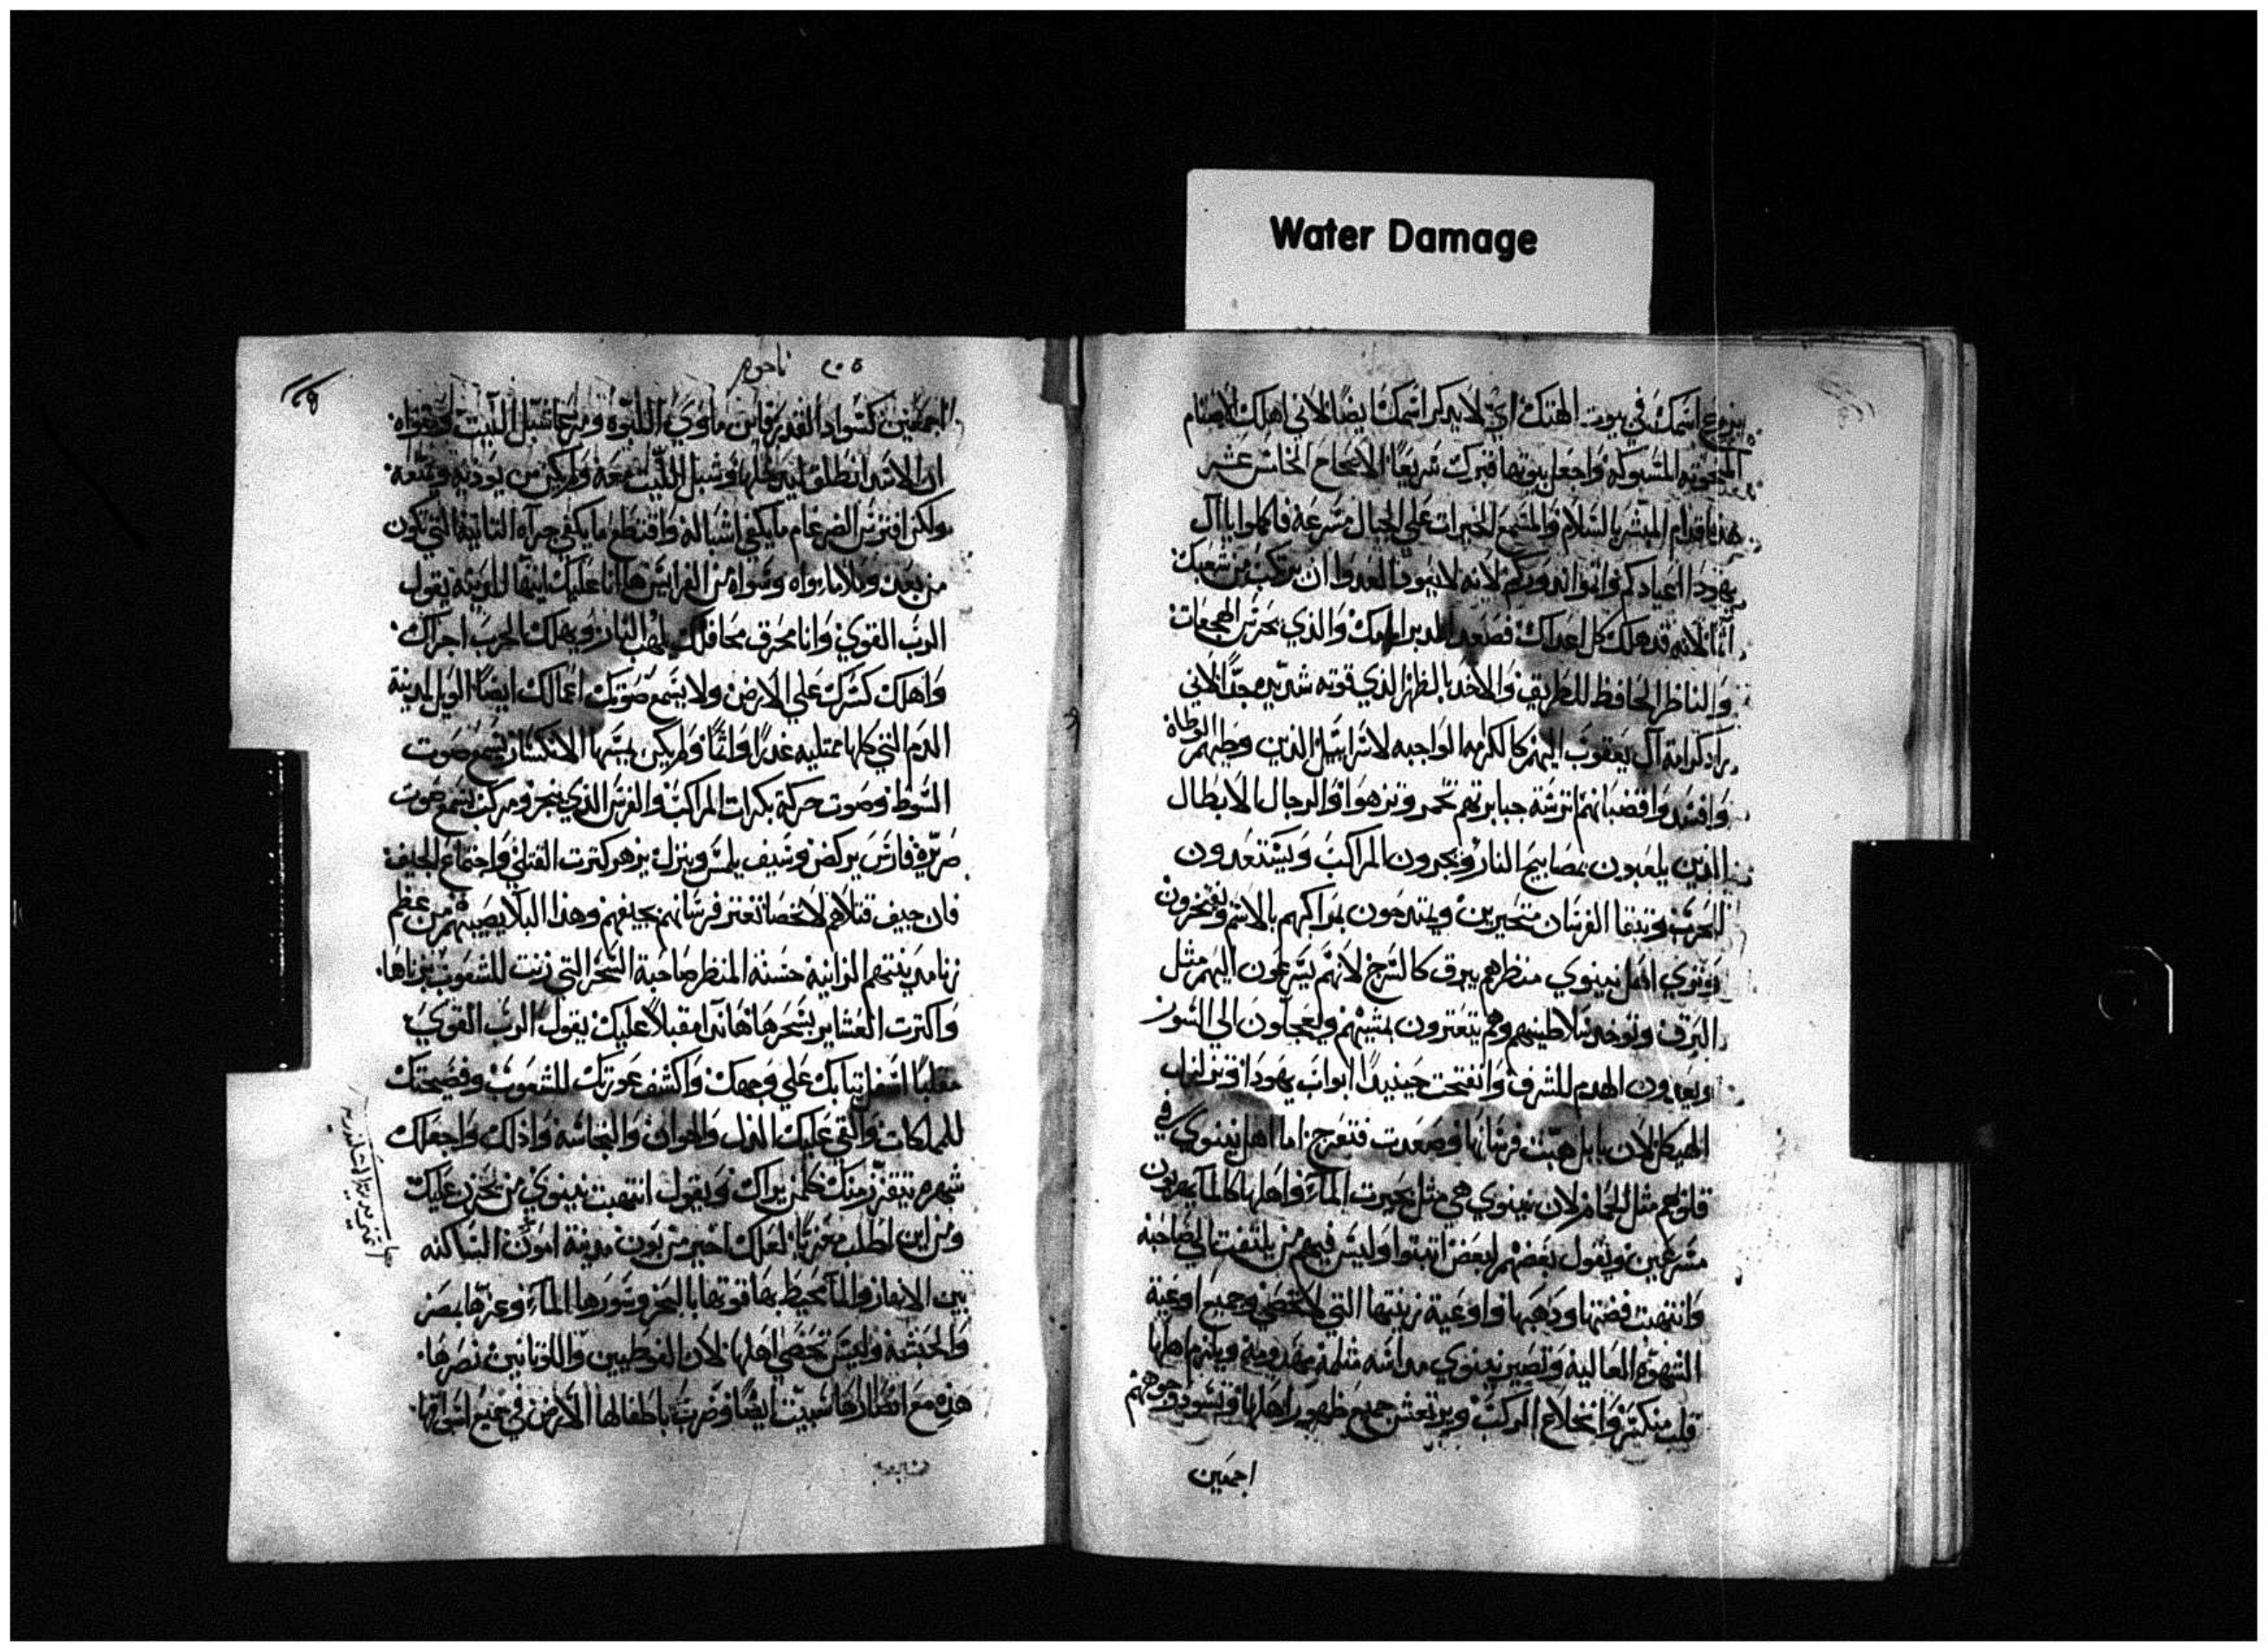 Water Damage
يزرع اسمك في بيوت الهتك اي لا يدكر اسمك ايضا لاني اهلك الاصنام
المنحوته المسبوكه واجعل بيوتها قبرك سريعا الاصحاح الخامس عشر
هده اقدام المبشر بالسلام والمسمع الخيرات علي الجبال مسرعة فاكملوا يا آل
يهودا اعيادكم واتوا ندوركم لانه لا يعودوا العدوا ان يرتكب من شعبك
اثما لانه قد هلك كل اعداك فصعد المدبر امامك والذي يحرس الهجعات
والناظر الحافظ للطريق والاخد بالظهر الذي قوته شديده جدا لاني
راد كرامة آل يعقوب اليهم كالكرامه الواجبه لاسراييل الذين وطيهم الوطاة
وافسدوا قضبانهم اترسة جبابرتهم تحمر وتزهوا والرجال الابطال
الذين يلعبون بمصابيح النار ويجرون المراكب ويستعدون
للحرب وتبقا الفرسان متحيرين ويمتدحون بمراكبهم بالاسم ويفتخرون
وتري اهل نينوي منظرهم يبرق كالسرج لانهم يسرعون اليهم مثل
البرق وتوخد سلاطينهم وهم يتعترون بمشيهم ويعجلون الي السور
ويعدون الهدم للشرف وانفتحت حينيدا ابواب يهودا وتزلزل
الهيكل لان بابل هيت فرسانها وصعدت فتعرج اما اهل نينوي في
قلوبهم مثل الحمام لان نينوي هي مثل بحيرت الماء واهلها كالما يهربون
مسرعين ويقول بعضهم لبعض اتبتوا وليس فيهم من يلتفت الي صاحبه
وانتهبت فضتها ودهبها واوعية زينتها التي لا تحصي وجميع اوعية
الشهوة العاليه وتصير نينوي مداسه متلمة مهدومة ويلزم اهلها
قلب منكسر وانخلاع الركب ويرتعش جميع ظهور اهلها وتسود وجوههم
اجمعين
ناحوم
اجمعين كسواد القدير فاين ماوي اللبوه ومرعا شبل الليت
ان الاسد انطلق ليدخلها وشبل الليت معه ولم يكن من يوديه ويمنعه
ولكن افترس الضرغام ما يكفي اشباله واقتطع ما يكفي جراه التانية التي تكون
من بعد وملا ماواه وسواه من الفرايس هاانا عليك ايتها المدينة يقول
الرب القوي وانا محرق محافلك بلهب النار ويهلك الحرب اجراك
واهلك كسرك علي الارض ولا يسمع صوتك اعمالك ايضا الويل لمدينة
الدم التي كلها ممتليه غدرا واثما ولم يكن يمسها الانكسار يسمع صوت
السوط وصوت حركة بكرات المراكب والفرس الذي ينجر ومركب يسمع صوت
صريره فارس يركض وسيف يلمس وينزل يزهر كترت القتلي واجتماع الجليف
فان جيف قتلاهم لا تحصا تتعتر فرسانهم بجيفهم وهذا البلا يصيبهم من عظم
زنا مدينتهم الزانية حسنة المنظر صاحبة السحر التي زنت للشعوب بزناها
واكترت العشاير بسحرها هاندا مقبلا عليك يقول الرب القوي
مقلبا اسفل تيابك علي وجهك واكشف عورتك للشعوب وفضيحتك
للمملكات والقي عليك الدل والهوان والنجاسة واذلك واجعلك
شهره يتقزز منك كلمن يراك ويقول انتهبت نينوي من يحزن عليك
ومن اين اطلب معزيا لعلك اخير من يون مدينة امون الساكنه
بين الانهار والما محيط بها قوتها بالبحر وسورها الماء وعزها بمصر
والحبشة وليس تحصي اهلها لان الفوطيين واللونانيين نصرها
هذه مع انصارها سبيت ايضا وضربت باطفالها الارض في جميع اسواقها